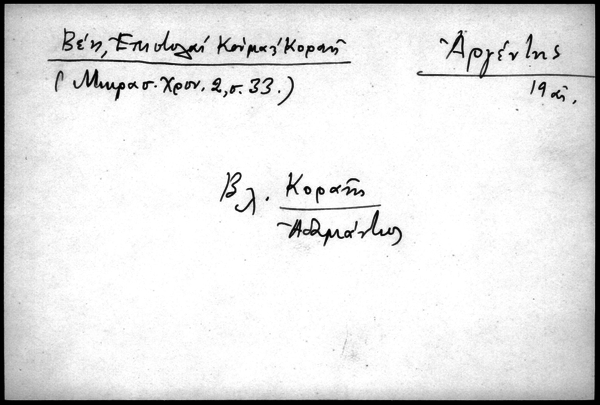 Βέη, Ἐπιστολαί Κούμα-Κοραῆ
(Μικρασ. Χρον. 2, σ. 33.)
Ἀργέντης
19 αἰ.
Βλ. Κοραῆς
Ἀδαμάντιος